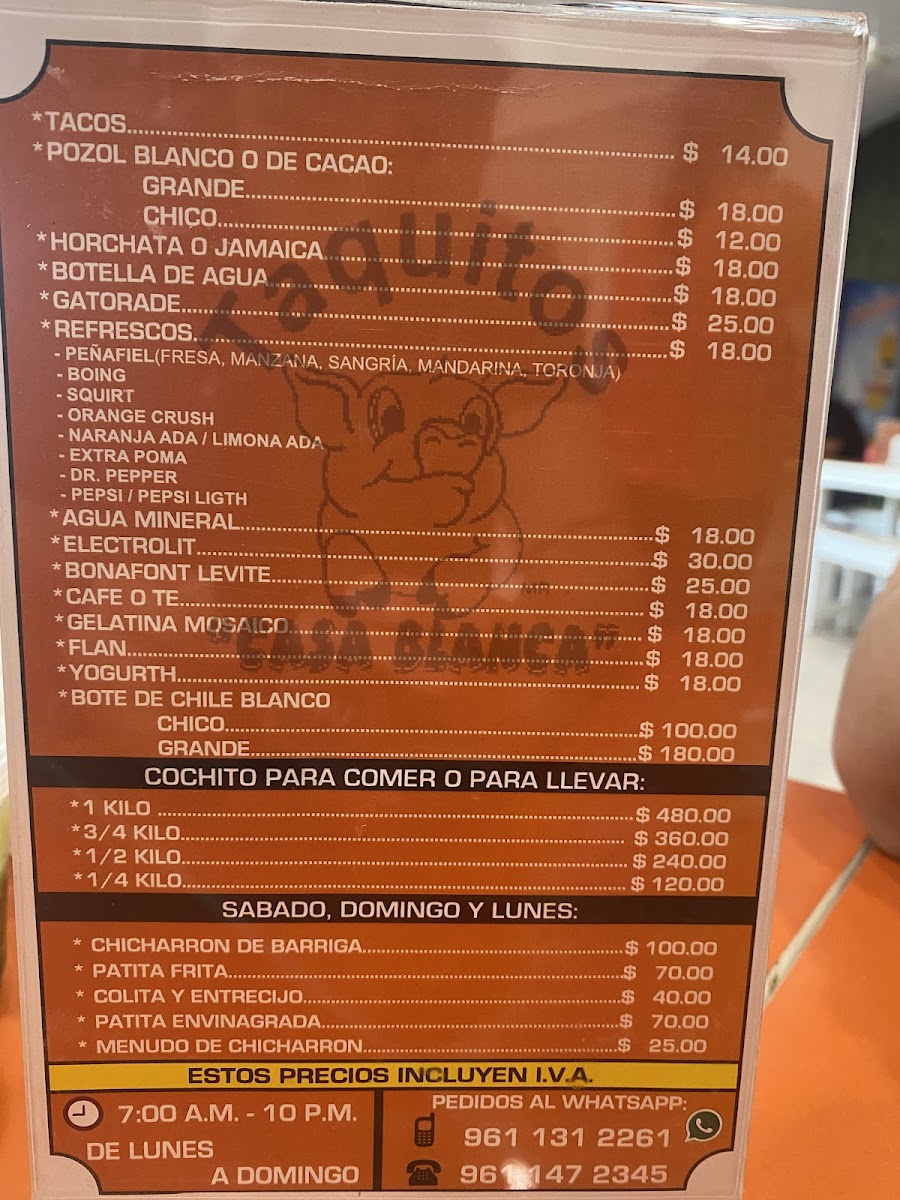 *TACOS........ $ 14.00
*POZOL BLANCO O DE CACAO:
GRANDE........ $ 18.00
CHICO........ $ 12.00
*HORCHATA O JAMAICA........ $ 18.00
*BOTELLA DE AGUA........ $ 18.00
*GATORADE........ $ 25.00
*REFRESCOS........ $ 18.00
- PEÑAFIEL(FRESA, MANZANA, SANGRÍA, MANDARINA, TORONJA)
- BOING
- SQUIRT
- ORANGE CRUSH
- NARANJA ADA / LIMONA ADA
- EXTRA POMA
- DR. PEPPER
- PEPSI / PEPSI LIGTH
*AGUA MINERAL........ $ 18.00
*ELECTROLIT........ $ 30.00
*BONAFONT LEVITE........ $ 25.00
*CAFE O TE........ $ 18.00
*GELATINA MOSAICO........ $ 18.00
*FLAN........ $ 18.00
*YOGURTH........ $ 18.00
*BOTE DE CHILE BLANCO
CHICO........ $ 100.00
GRANDE........ $ 180.00
Taquitos
"CASA BLANCA"
COCHITO PARA COMER O PARA LLEVAR:
*1 KILO ........ $ 480.00
*3/4 KILO........ $ 360.00
*1/2 KILO........ $ 240.00
*1/4 KILO........ $ 120.00
SABADO, DOMINGO Y LUNES:
* CHICHARRON DE BARRIGA........ $ 100.00
* PATITA FRITA........ $ 70.00
* COLITA Y ENTRECIJO........ $ 40.00
* PATITA ENVINAGRADA........ $ 70.00
* MENUDO DE CHICHARRON........ $ 25.00
ESTOS PRECIOS INCLUYEN I.V.A.
7:00 A.M. - 10 P.M.
DE LUNES
A DOMINGO
PEDIDOS AL WHATSAPP:
961 131 2261
961 147 2345